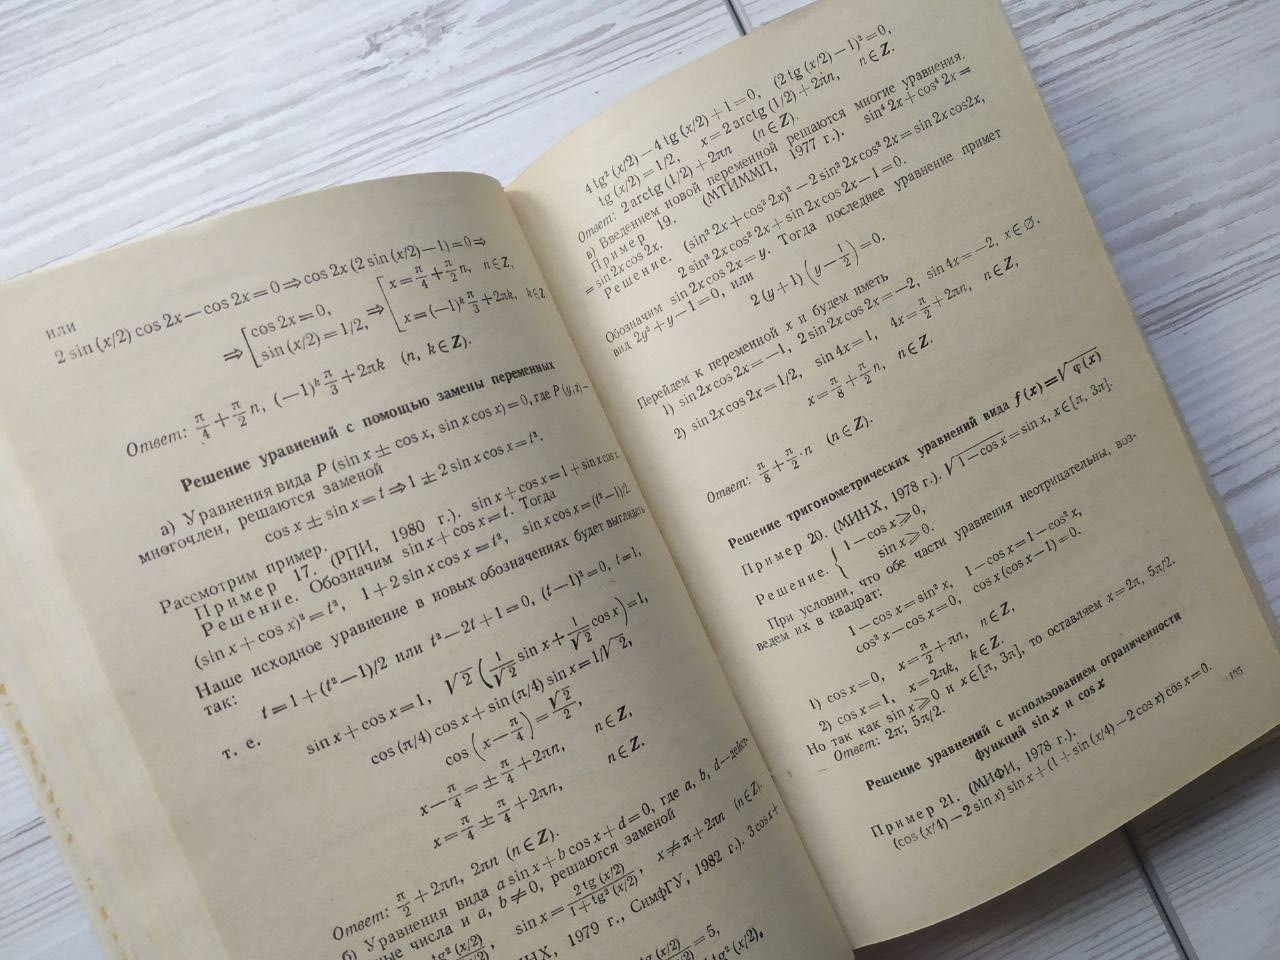 или
2 sin (x/2) cos 2x — cos 2x = 0 ⇒ cos 2x (2 sin (x/2) — 1) = 0 ⇒
⇒ [ cos 2x = 0, sin (x/2) = 1/2, ⇒ [ x = π/4 + π/2 n, n ∈ Z, x = (—1)^k π/3 + 2πk, k ∈ Z
Ответ: π/4 + π/2 n, (—1)^k π/3 + 2πk (n, k ∈ Z).
Решение уравнений с помощью замены переменных
а) Уравнения вида P (sin x ± cos x, sin x cos x) = 0, где P (y, z) —
многочлен, решаются заменой
cos x ± sin x = t ⇒ 1 ± 2 sin x cos x = t².
Рассмотрим пример.
Пример 17. (РПИ, 1980 г.). sin x + cos x = 1 + sin x cos x.
Решение. Обозначим sin x + cos x = t. Тогда
(sin x + cos x)² = t², 1 + 2 sin x cos x = t², sin x cos x = (t² — 1)/2.
Наше исходное уравнение в новых обозначениях будет выглядеть
так:
t = 1 + (t² — 1)/2 или t² — 2t + 1 = 0, (t — 1)² = 0, t = 1,
т. е.
sin x + cos x = 1, √2 (1/√2 sin x + 1/√2 cos x) = 1,
cos (π/4) cos x + sin (π/4) sin x = 1/√2,
cos (x — π/4) = √2/2,
x — π/4 = ± π/4 + 2πn, n ∈ Z,
x = π/4 ± π/4 + 2πn, n ∈ Z.
Ответ: π/2 + 2πn, 2πn (n ∈ Z).
б) Уравнения вида a sin x + b cos x + d = 0, где a, b, d — дейст-
ные числа и a, b ≠ 0, решаются заменой
tg² (x/2), sin x = 2 tg (x/2)/1 + tg² (x/2), x ≠ π + 2πn (n ∈ Z).
1979 г., СимфГУ, 1982 г.). 3 cos x +
tg (x/2) = 5,
tg² (x/2),
4 tg² (x/2) — 4 tg (x/2) + 1 = 0, (2 tg (x/2) — 1)² = 0,
tg (x/2) = 1/2, x = 2 arctg (1/2) + 2πn, n ∈ Z.
Ответ: 2 arctg (1/2) + 2πn (n ∈ Z).
в) Введением новой переменной решаются многие уравнения.
Пример 19. (МТИММП, 1977 г.). sin⁴ 2x + cos⁴ 2x =
= sin 2x cos 2x.
Решение. (sin² 2x + cos² 2x)² — 2 sin² 2x cos² 2x = sin 2x cos 2x,
2 sin² 2x cos² 2x + sin 2x cos 2x — 1 = 0.
Обозначим sin 2x cos 2x = y. Тогда последнее уравнение примет
вид 2y² + y — 1 = 0, или
2 (y + 1) (y — 1/2) = 0.
Перейдем к переменной x и будем иметь
1) sin 2x cos 2x = —1, 2 sin 2x cos 2x = —2, sin 4x = —2, x ∈ ∅.
2) sin 2x cos 2x = 1/2, sin 4x = 1, 4x = π/2 + 2πn, n ∈ Z,
x = π/8 + π/2 n, n ∈ Z.
Ответ: π/8 + π/2 · n (n ∈ Z).
Решение тригонометрических уравнений вида f (x) = √φ(x)
Пример 20. (МИНХ, 1978 г.). √1 — cos x = sin x, x ∈ [π, 3π].
Решение. { 1 — cos x ⩾ 0, sin x ⩾ 0.
При условии, что обе части уравнения неотрицательны, воз-
ведем их в квадрат:
1 — cos x = sin² x, 1 — cos x = 1 — cos² x,
cos² x — cos x = 0, cos x (cos x — 1) = 0.
1) cos x = 0, x = π/2 + πn, n ∈ Z,
2) cos x = 1, x = 2πk, k ∈ Z.
Но так как sin x ⩾ 0 и x ∈ [π, 3π], то оставляем x = 2π, 5π/2.
Ответ: 2π; 5π/2.
Решение уравнений с использованием ограниченности
функций sin x и cos x
Пример 21. (МИФИ, 1978 г.).
(cos (x/4) — 2 sin x) sin x + (1 + sin (x/4) — 2 cos x) cos x = 0.